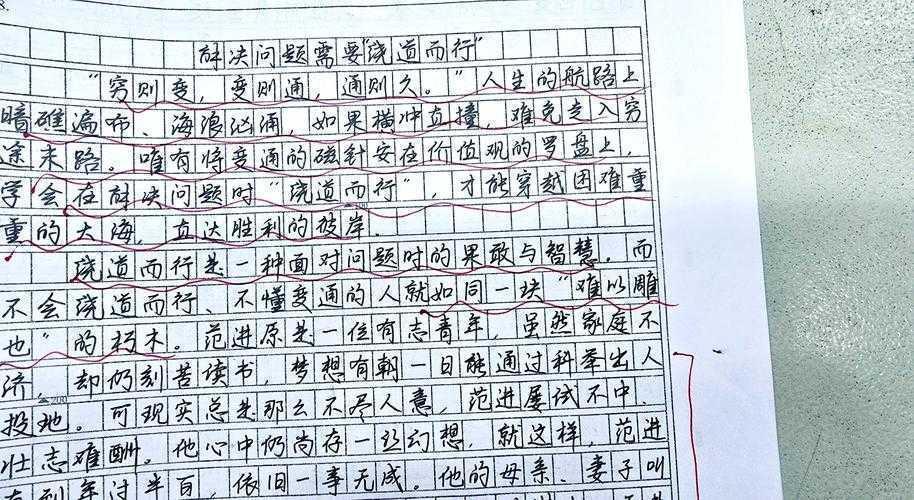 8.
解决问题需要“绕道而行”
“穷则变，变则通，通则久。”人生的航路上
暗礁遍布、海浪汹涌，如果横冲直撞，难免走入穷
途末路。唯有将变通的磁针安在价值观的罗盘上，
学会在解决问题时“绕道而行”，才能穿越困难重
重的大海，直达胜利的彼岸．
绕道而行是一种面对问题时的果敢与智慧．而
不会绕道而行、不懂变通的人就如同一块“难以雕
也”的朽木。范进原是一位有志青年，虽然家庭不
济，却仍刻苦读书，梦想有朝一日能通过科举出人
投地。可现实总是那么不尽人意，范进屡试不中．
壮志难酬。他心中仍尚存一丝幻想．就这样，范进
年过半百，依旧一事无成．他的母亲、妻子叫